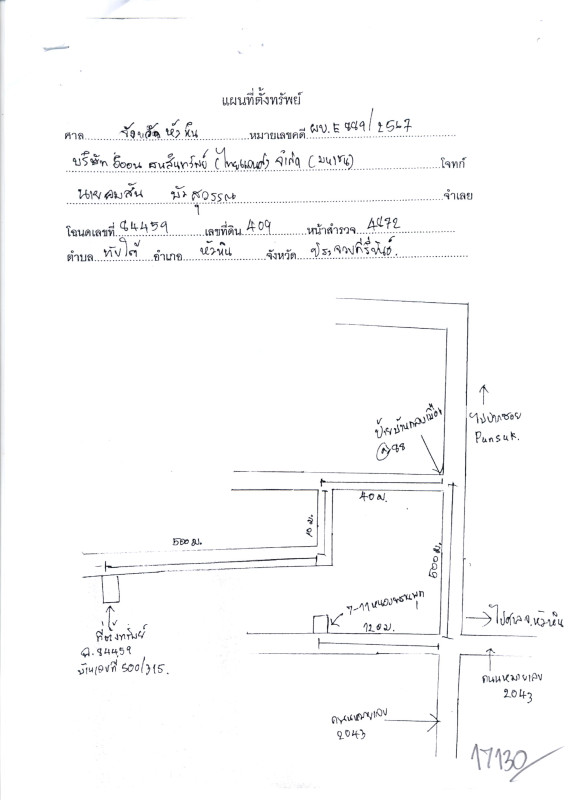 แผนที่ตั้งทรัพย์
ศาล จังหวัดหัวหิน หมายเลขคดี ผบ.E 449/2567
บริษัท ธนสินทรัพย์ (ไทยแลนด์) จำกัด (มหาชน) โจทก์
นายคมสัน บัวสุวรรณ จำเลย
โฉนดเลขที่ 84459 เลขที่ดิน 409 หน้าสำรวจ 4472
ตำบล ทับใต้ อำเภอ หัวหิน จังหวัด ประจวบคีรีขันธ์
ไปปากซอย
Punsuk.
@88
40 ม.
10 ม.
500 ม.
500 ม.
7-11
120 ม.
ที่ตั้งทรัพย์
ฉ.84459
บ้านเลขที่ 500/315.
ไปศาลจ.หัวหิน
ถนนหมายเลข
2043
ถนนหมายเลข
2043
17130